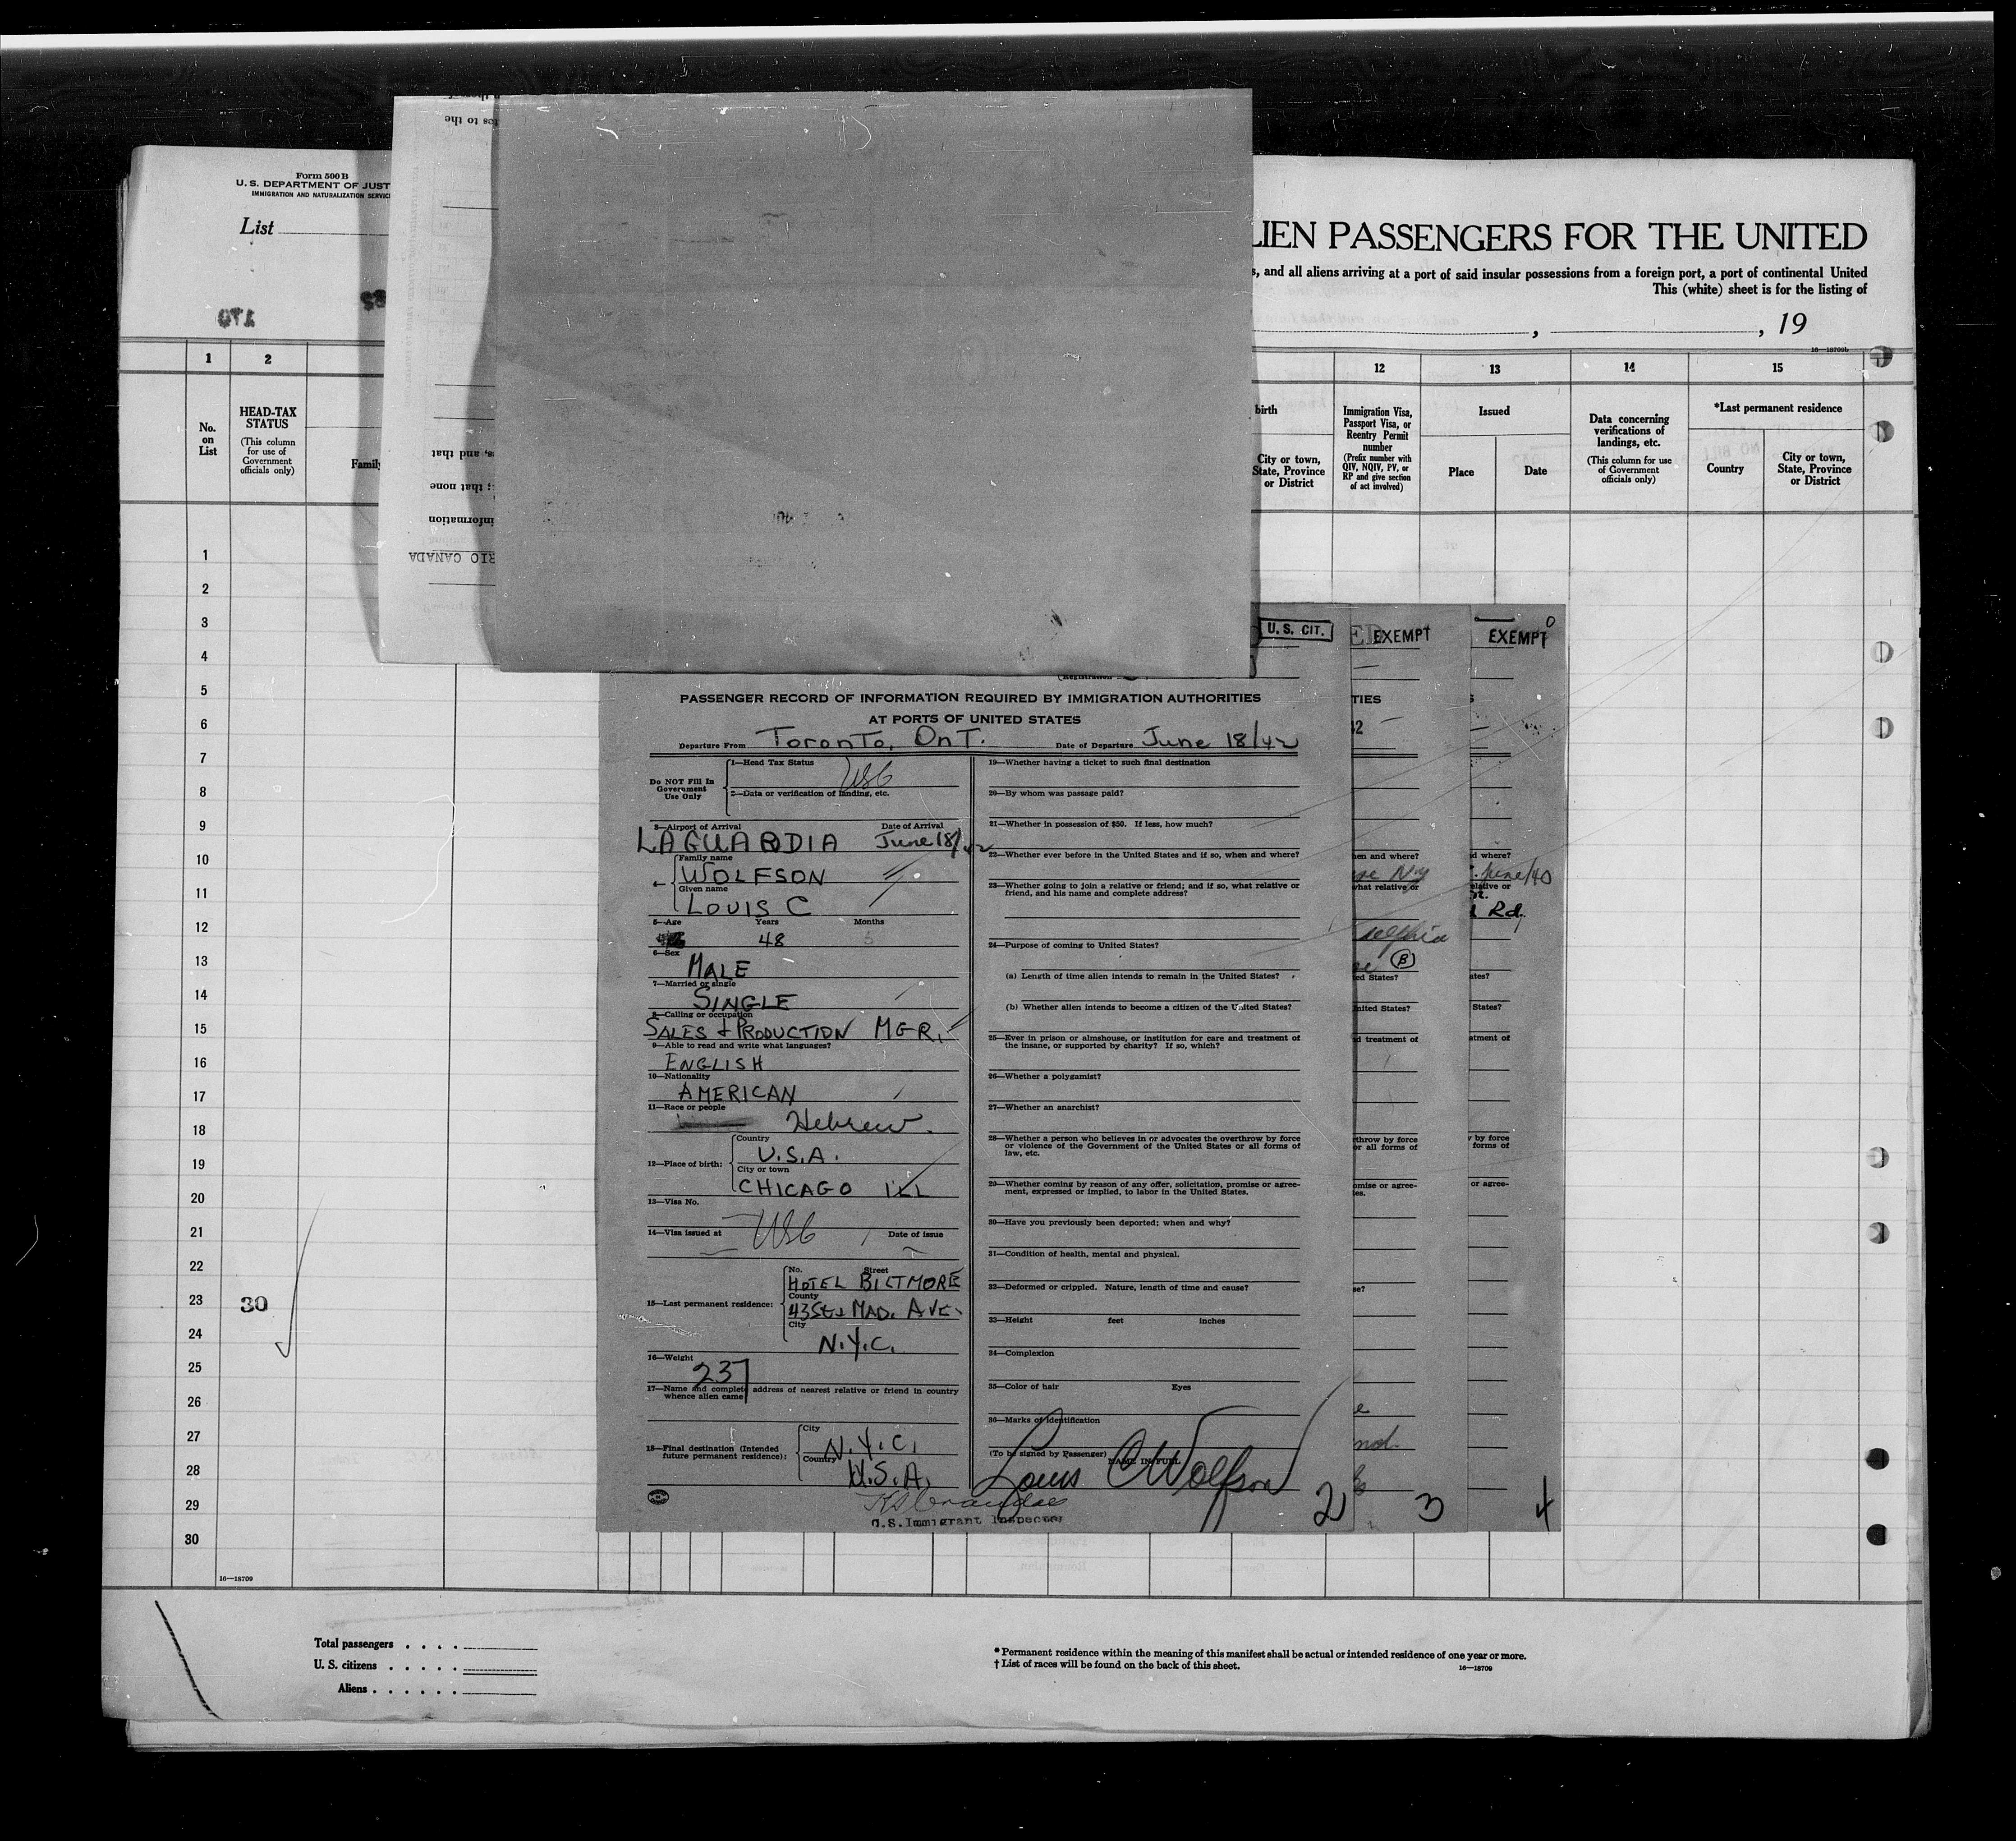 Form 500 B
U. S. DEPARTMENT OF JUST
IMMIGRATION AND NATURALIZATION SERVICE
List
170
tes to the
s, and that
; that none
information
RIO CANADA
LIEN PASSENGERS FOR THE UNITED
s, and all aliens arriving at a port of said insular possessions from a foreign port, a port of continental United
This (white) sheet is for the listing of
, , 19
16—18709L
1 2 12 13 14 15
No. on List
HEAD-TAX STATUS
(This column for use of Government officials only)
Family
birth
City or town, State, Province or District
Immigration Visa, Passport Visa, or Reentry Permit number
(Prefix number with QIV, NQIV, PV, or RP and give section of act involved)
Issued
Place
Date
Data concerning verifications of landings, etc.
(This column for use of Government officials only)
*Last permanent residence
Country
City or town, State, Province or District
1
2
3
4
5
6
7
8
9
10
11
12
13
14
15
16
17
18
19
20
21
22
23 30
24
25
26
27
28
29
30
16—18709
U. S. CIT.
EXEMPT
EXEMPT
PASSENGER RECORD OF INFORMATION REQUIRED BY IMMIGRATION AUTHORITIES
AT PORTS OF UNITED STATES
Departure From Toronto, Ont. Date of Departure June 18/42
Do NOT Fill In Government Use Only
1—Head Tax Status USC
2—Data or verification of landing, etc.
3—Airport of Arrival Date of Arrival
LAGUARDIA June 18/42
Family name
WOLFSON
Given name
LOUIS C
5—Age Years Months
48
6—Sex
MALE
7—Married or single
SINGLE
8—Calling or occupation
SALES & PRODUCTION MGR.
9—Able to read and write what languages?
ENGLISH
10—Nationality
AMERICAN
11—Race or people
Hebrew.
12—Place of birth:
Country
U.S.A.
City or town
CHICAGO ILL
13—Visa No.
14—Visa issued at USC Date of issue
15—Last permanent residence:
No. Street
HOTEL BILTMORE
County
43 St & MAD. AVE.
City
N.Y.C.
16—Weight
237
17—Name and complete address of nearest relative or friend in country whence alien came
18—Final destination (Intended future permanent residence):
City
N.Y.C.
Country
U.S.A.
U.S. Immigrant Inspector
19—Whether having a ticket to such final destination
20—By whom was passage paid?
21—Whether in possession of $50. If less, how much?
22—Whether ever before in the United States and if so, when and where?
23—Whether going to join a relative or friend; and if so, what relative or friend, and his name and complete address?
24—Purpose of coming to United States?
(a) Length of time alien intends to remain in the United States?
(b) Whether alien intends to become a citizen of the United States?
25—Ever in prison or almshouse, or institution for care and treatment of the insane, or supported by charity? If so, which?
26—Whether a polygamist?
27—Whether an anarchist?
28—Whether a person who believes in or advocates the overthrow by force or violence of the Government of the United States or all forms of law, etc.
29—Whether coming by reason of any offer, solicitation, promise or agreement, expressed or implied, to labor in the United States.
30—Have you previously been deported; when and why?
31—Condition of health, mental and physical.
32—Deformed or crippled. Nature, length of time and cause?
33—Height feet inches
34—Complexion
35—Color of hair Eyes
36—Marks of identification
(To be signed by Passenger) NAME IN FULL
Louis C Wolfson
2
TIES
42
en and where?
N.Y
what relative or
B
ed States?
nited States?
d treatment of
throw by force
or all forms of
omise or agree-
tes.
se?
3
d where?
June/40
elative or
Rd.
ates?
States?
atment of
by force
forms of
or agree-
4
Total passengers . . . .
U. S. citizens . . . . .
Aliens . . . . . .
* Permanent residence within the meaning of this manifest shall be actual or intended residence of one year or more.
† List of races will be found on the back of this sheet.
16—18709